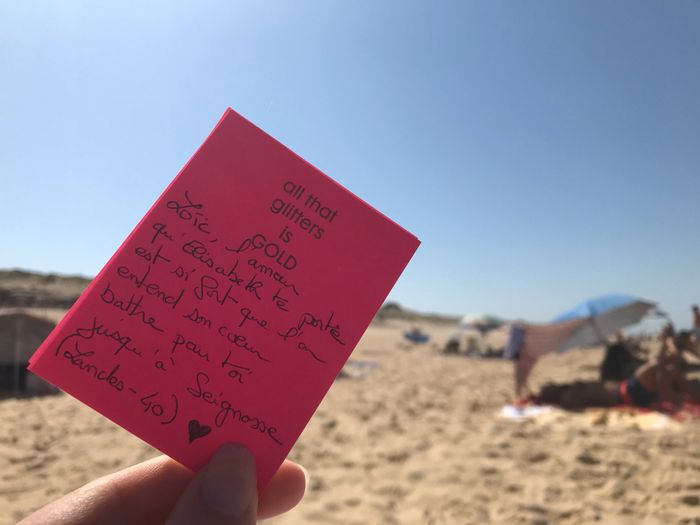 all that
glitters
is
GOLD
Loïc, l'amour
qu'Elisabeth te porte
est si fort que l'on
entend son cœur
battre pour toi
jusqu'à Seignosse
(Landes - 40) ♥